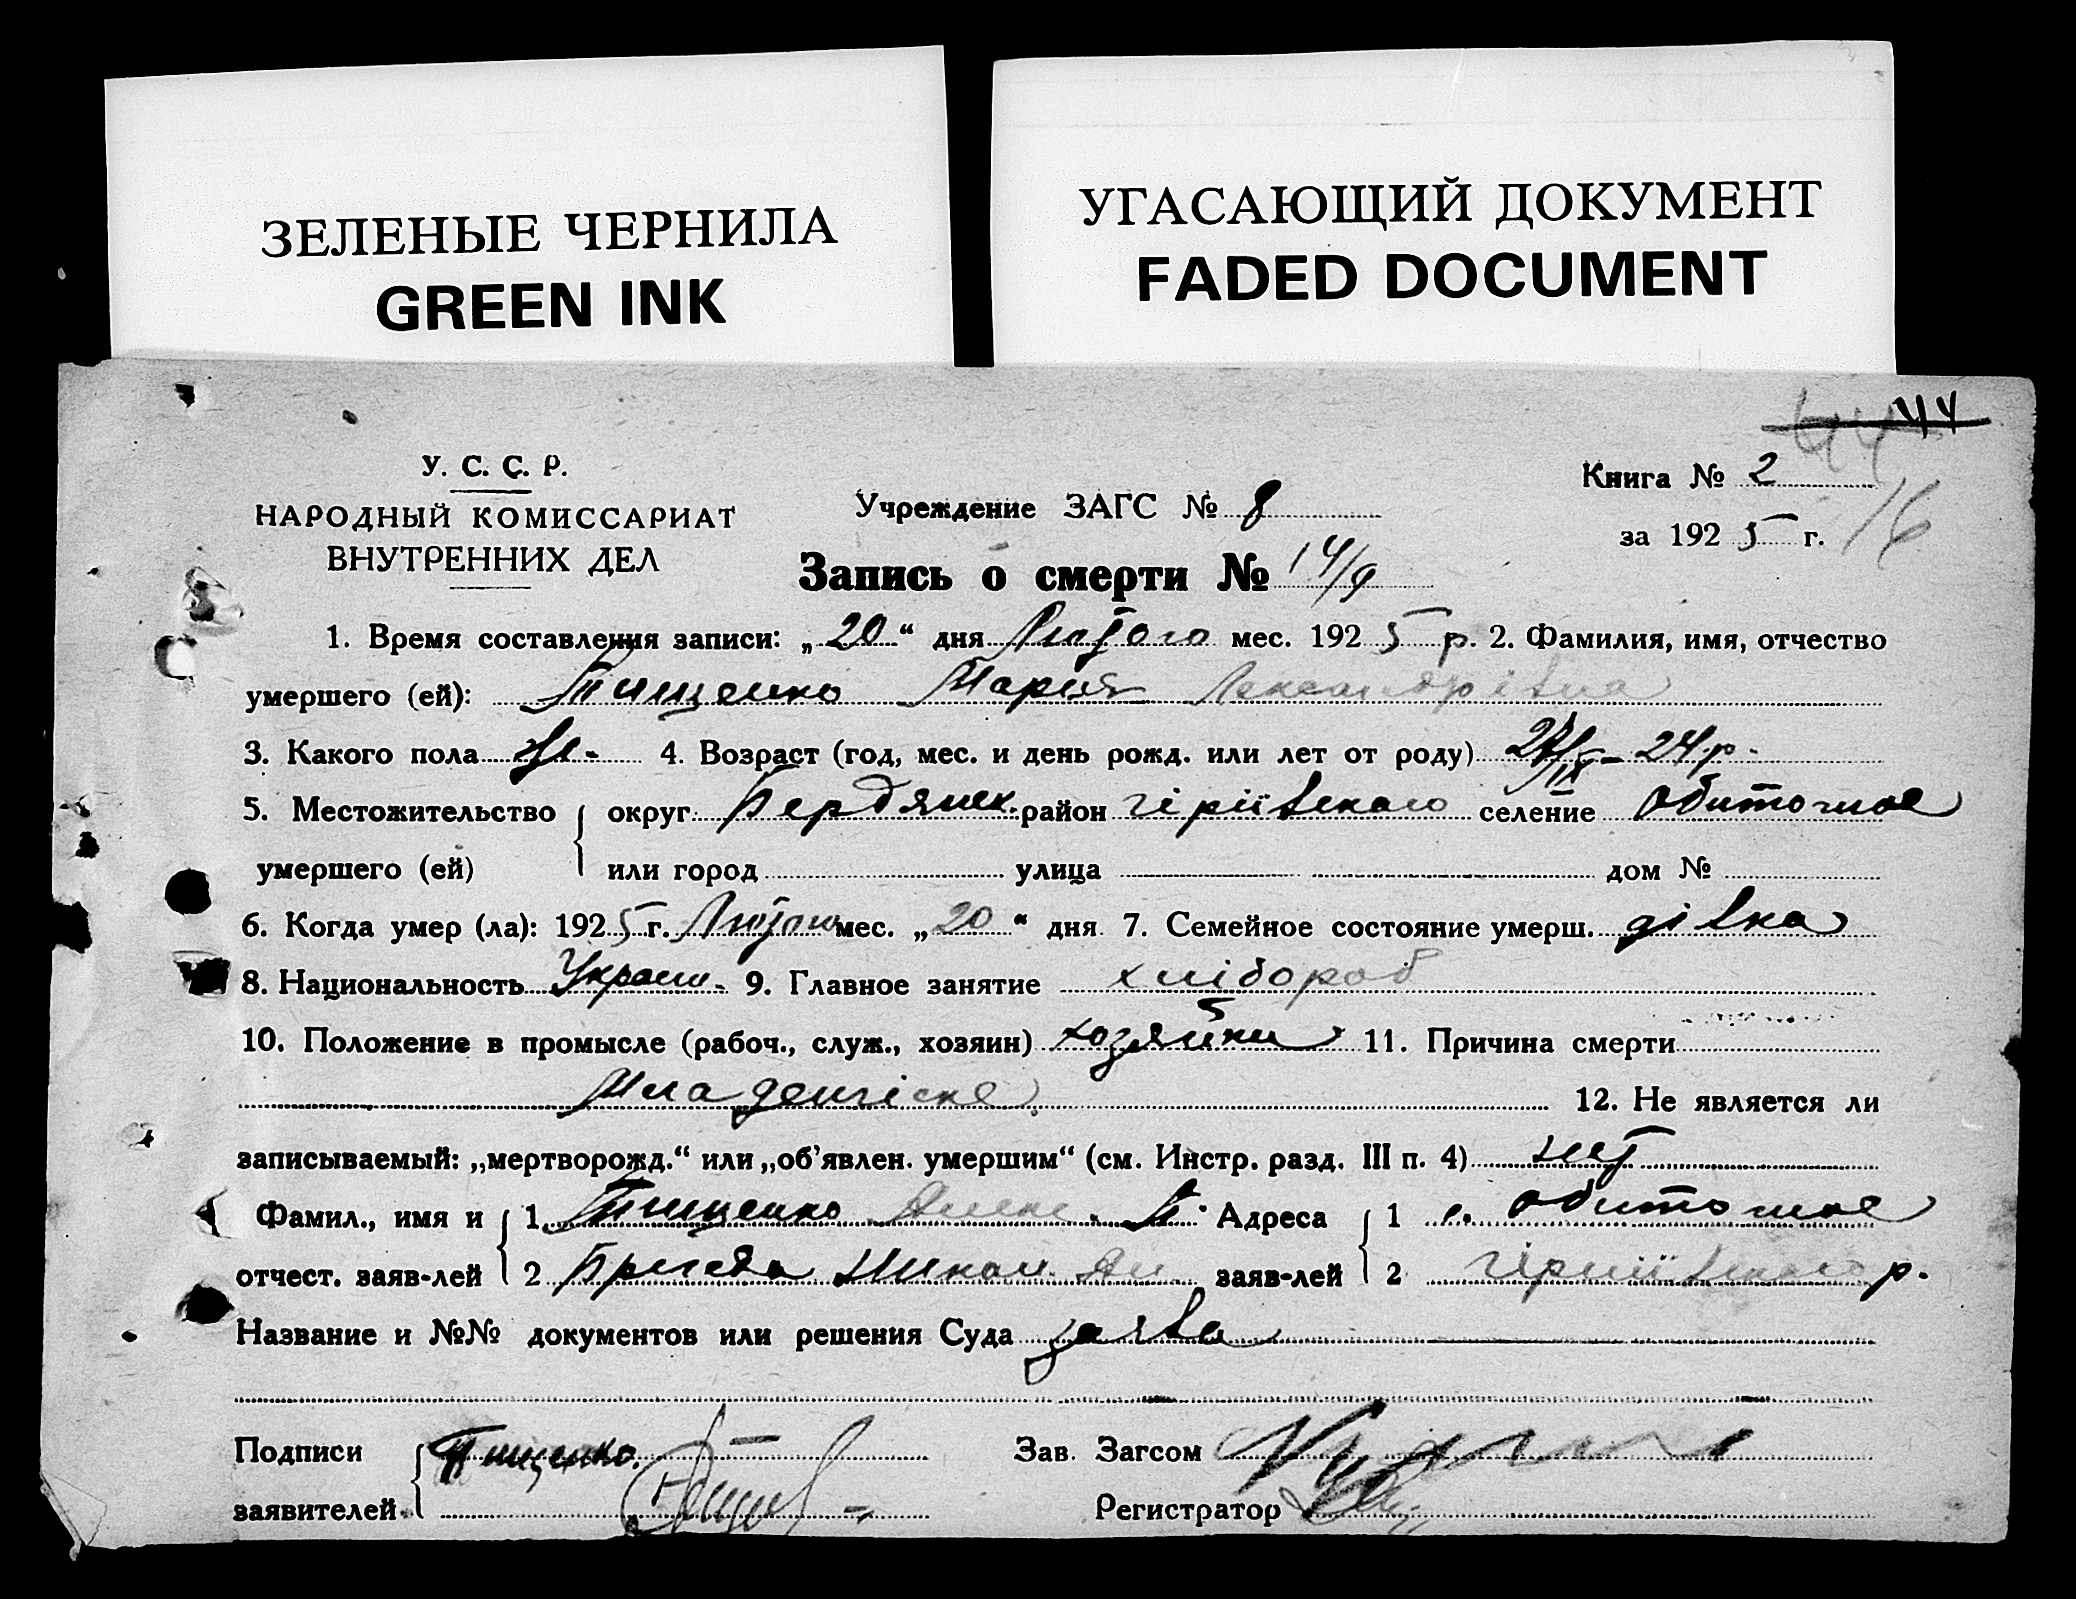 ЗЕЛЕНЫЕ ЧЕРНИЛА
GREEN INK
УГАСАЮЩИЙ ДОКУМЕНТ
FADED DOCUMENT
44
У. С. С. Р.
НАРОДНЫЙ КОМИССАРИАТ
ВНУТРЕННИХ ДЕЛ
Учреждение ЗАГС № 8
Книга № 2
за 1925 г. 16
Запись о смерти № 14/9
1. Время составления записи: „20“ дня Лютого мес. 1925 р. 2. Фамилия, имя, отчество
умершего (ей): Тищенко Мария Лександрівна
3. Какого пола ж. 4. Возраст (год, мес. и день рожд. или лет от роду) 24р.
5. Местожительство округ Бердянск. район селение Обиточное
умершего (ей) или город улица дом №
6. Когда умер (ла): 1925 г. Лютого мес. „20“ дня 7. Семейное состояние умерш. дівка
8. Национальность Украин. 9. Главное занятие хлібороб
10. Положение в промысле (рабоч., служ., хозяин) хозяйки 11. Причина смерти
Младенчіске 12. Не является ли
записываемый: „мертворожд.“ или „об’явлен. умершим“ (см. Инстр. разд. III п. 4) нет
Фамил., имя и 1 Тищенко Адреса 1 с. Обиточное
отчест. заяв-лей 2 Никол. заяв-лей 2 р.
Название и №№ документов или решения Суда заява
Подписи Тищенко Зав. Загсом
заявителей Регистратор